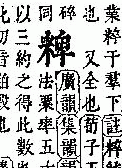 業粹千羣下註粹
又全也荀子王
碎
同
粺廣韻集韻
法粟率五十
以三約之得此數